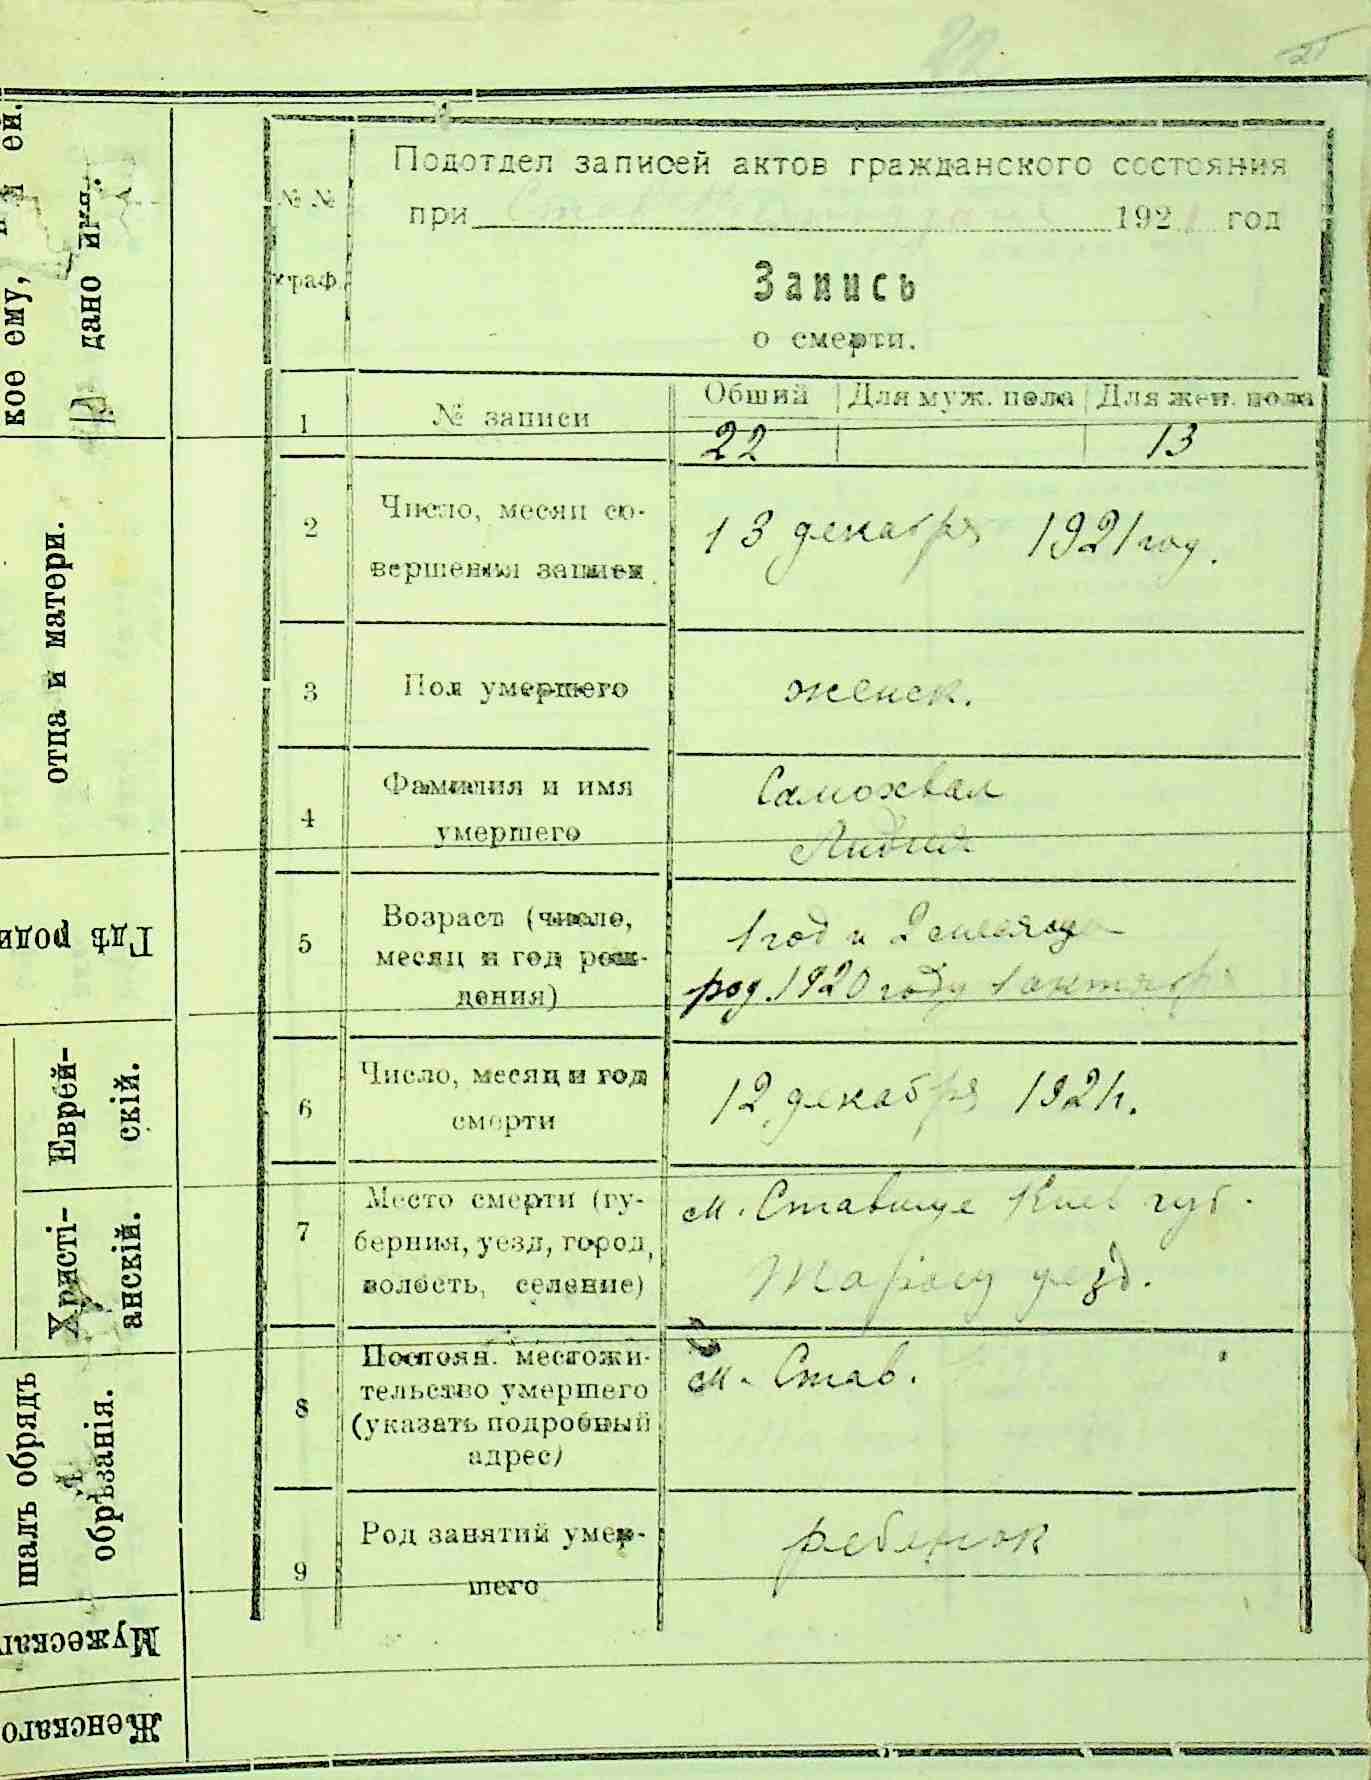 22
Подотдел записей актов гражданского состояния
при 1921 год
№ №
граф.
Запись
о смерти.
1 № записи Общий Для муж. пола Для жен. пола
22 13
2 Число, месяц со-
вершения записи
13 декабря 1921 год.
3 Пол умершего женск.
4 Фамилия и имя
умершего
Самохвал
Лидия
5 Возраст (число,
месяц и год рож-
дения)
1 год и 2 месяца
род. 1920 году 1 октября
6 Число, месяц и год
смерти
12 декабря 1921 г.
7 Место смерти (гу-
берния, уезд, город,
волость, селение)
м. Ставище Киев губ.
уезд.
8 Постоян. местожи-
тельство умершего
(указать подробный
адрес)
м. Став.
9 Род занятий умер-
шего
ребенок
кое ему, ей.
дано имя.
отца и матери.
Гдѣ роди
Еврей-
скій.
Христі-
анскій.
шалъ обрядъ
обрѣзанія.
Мужескаго
Женскаго